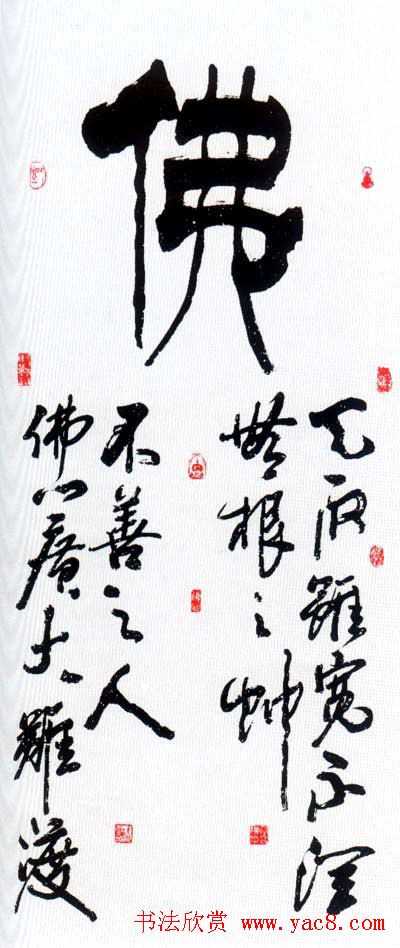 佛
天雨雖寬不潤
無根之艸
佛门廣大難渡
不善之人
书法欣赏 www.yac8.com